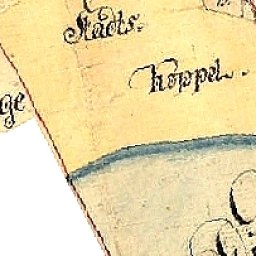 Stadts.
Koppel.
ge